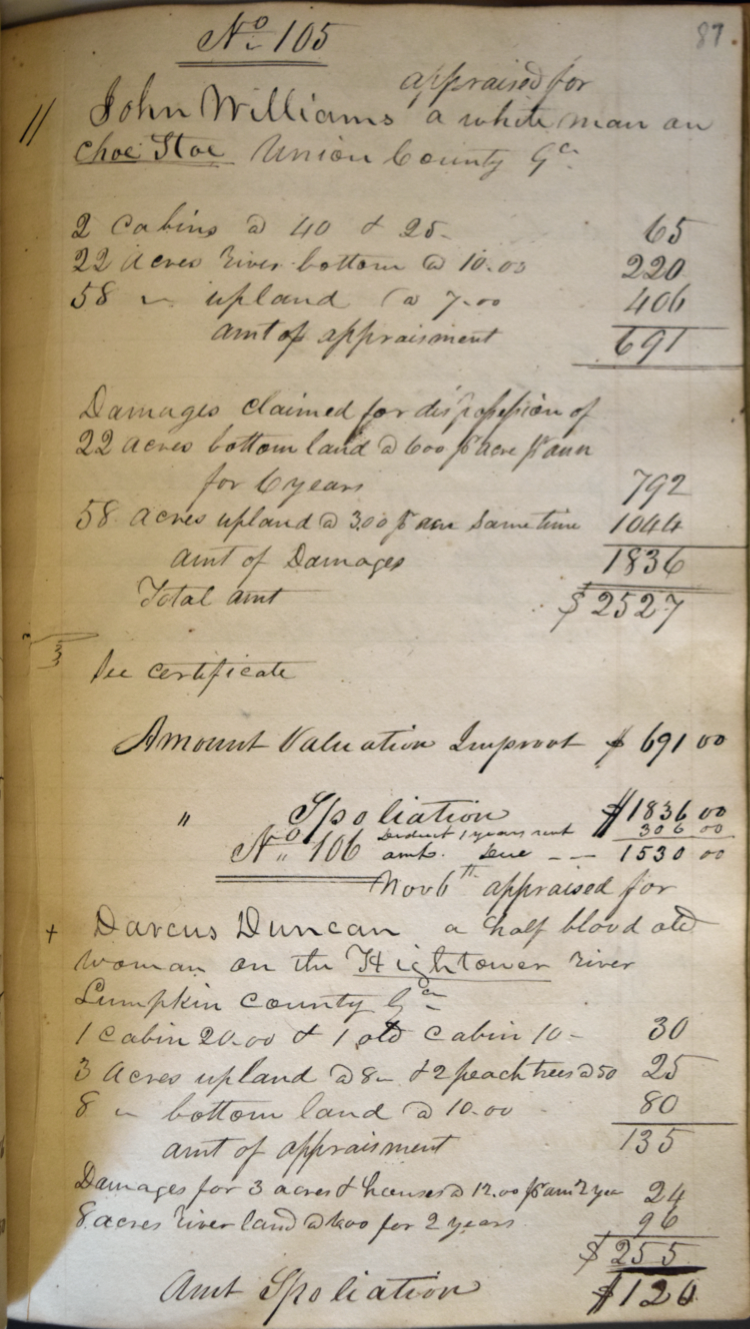 No 105
87.
appraised for
// John Williams a white man on
Choe Stoe Union County Ga
2 Cabins @ 40 & 25- 65
22 Acres River bottom @ 10.00 220
58 " upland @ 7.00 406
amt of appraisment 691
Damages claimed for dispossession of
22 acres bottom land @ 600 pr acre pr ann
for 6 years 792
58 acres upland @ 3.00 pr ann Same time 1044
amt of Damages 1836
Total amt $2527
See certificate
Amount Valuation Improvt $ 691 00
" Spoliation $1836 00
Deduct 1 years rent 306 00
No 106 amt. due - - 1530 00
Nov 6th appraised for
+ Darcus Duncan a half blood old
woman on the Hightower River
Lumpkin County Ga
1 Cabin 20.00 & 1 old Cabin 10- 30
3 Acres upland @ 8- & 2 peach trees @ 50 25
8 " bottom land @ 10.00 80
amt of appraisment 135
Damages for 3 acres & houses @ 12.00 pr an 2 yea 24
8 acres River land @ 600 for 2 years 96
$255
Amt Spoliation $120